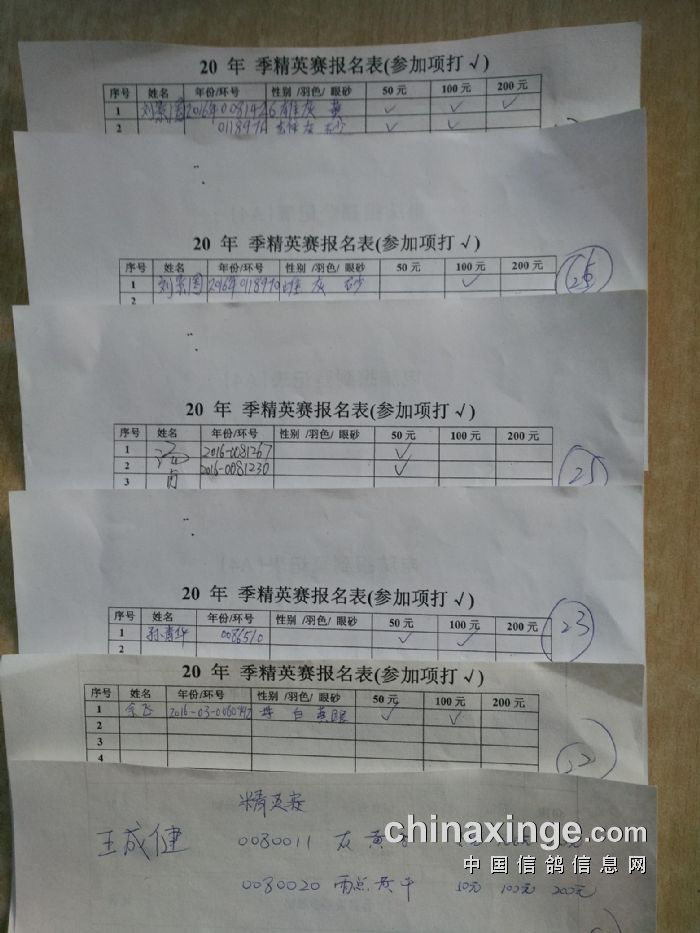 20 年 季精英赛报名表(参加项打 √)
序号 姓名 年份/环号 性别 /羽色/ 眼砂 50 元 100 元 200 元
1 刘景国 2016年0081426 雄 灰 黄 ✓ ✓ ✓
2 0118970 雄 灰 砂 ✓ ✓
20 年 季精英赛报名表(参加项打 √)
序号 姓名 年份/环号 性别 /羽色/ 眼砂 50 元 100 元 200 元
1 刘景国 2016年0118970 雄 灰 砂 ✓
2
26
20 年 季精英赛报名表(参加项打 √)
序号 姓名 年份/环号 性别 /羽色/ 眼砂 50 元 100 元 200 元
1 2016-0081267 ✓
2 2016-0081230 ✓
3
25
20 年 季精英赛报名表(参加项打 √)
序号 姓名 年份/环号 性别 /羽色/ 眼砂 50 元 100 元 200 元
1 孙青华 0086510 ✓ ✓
2
23
20 年 季精英赛报名表(参加项打 √)
序号 姓名 年份/环号 性别 /羽色/ 眼砂 50 元 100 元 200 元
1 余飞 2016-03- 白 黄眼 ✓ ✓
2
3
4
22
精英赛
王成健 0080011 灰 黄
0080020 雨点 黄 50元 100元 200元
chinaxinge.com
中国信鸽信息网